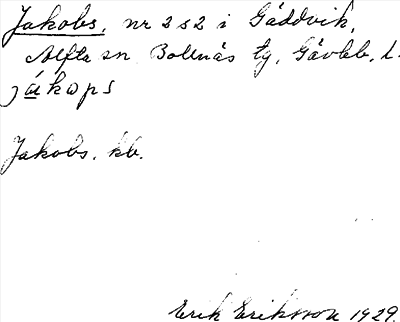 Jakobs, nr 2 s2 i Gäddvik,
Alfta sn Bollnäs tg, Gävleb. l.
jákops
Jakobs. kb.
Erik Eriksson 1929.